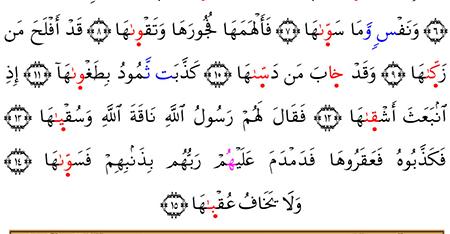 ﴿٦﴾ وَنَفْسٖ وَّمَا سَوَّىٰهَا ﴿٧﴾ فَأَلْهَمَهَا فُجُورَهَا وَتَقْوَىٰهَا ﴿٨﴾ قَدْ أَفْلَحَ مَن
زَكَّىٰهَا ﴿٩﴾ وَقَدْ خَابَ مَن دَسَّىٰهَا ﴿١٠﴾ كَذَّبَت ثَّمُودُ بِطَغْوَىٰهَآ ﴿١١﴾ إِذِ
ٱنۢبَعَثَ أَشْقَىٰهَا ﴿١٢﴾ فَقَالَ لَهُمْ رَسُولُ ٱللَّهِ نَاقَةَ ٱللَّهِ وَسُقْيَىٰهَا ﴿١٣﴾
فَكَذَّبُوهُ فَعَقَرُوهَا فَدَمْدَمَ عَلَيْهُمْ رَبُّهُم بِذَنۢبِهِمْ فَسَوَّىٰهَا ﴿١٤﴾
وَلَا يَخَافُ عُقْبَىٰهَا ﴿١٥﴾